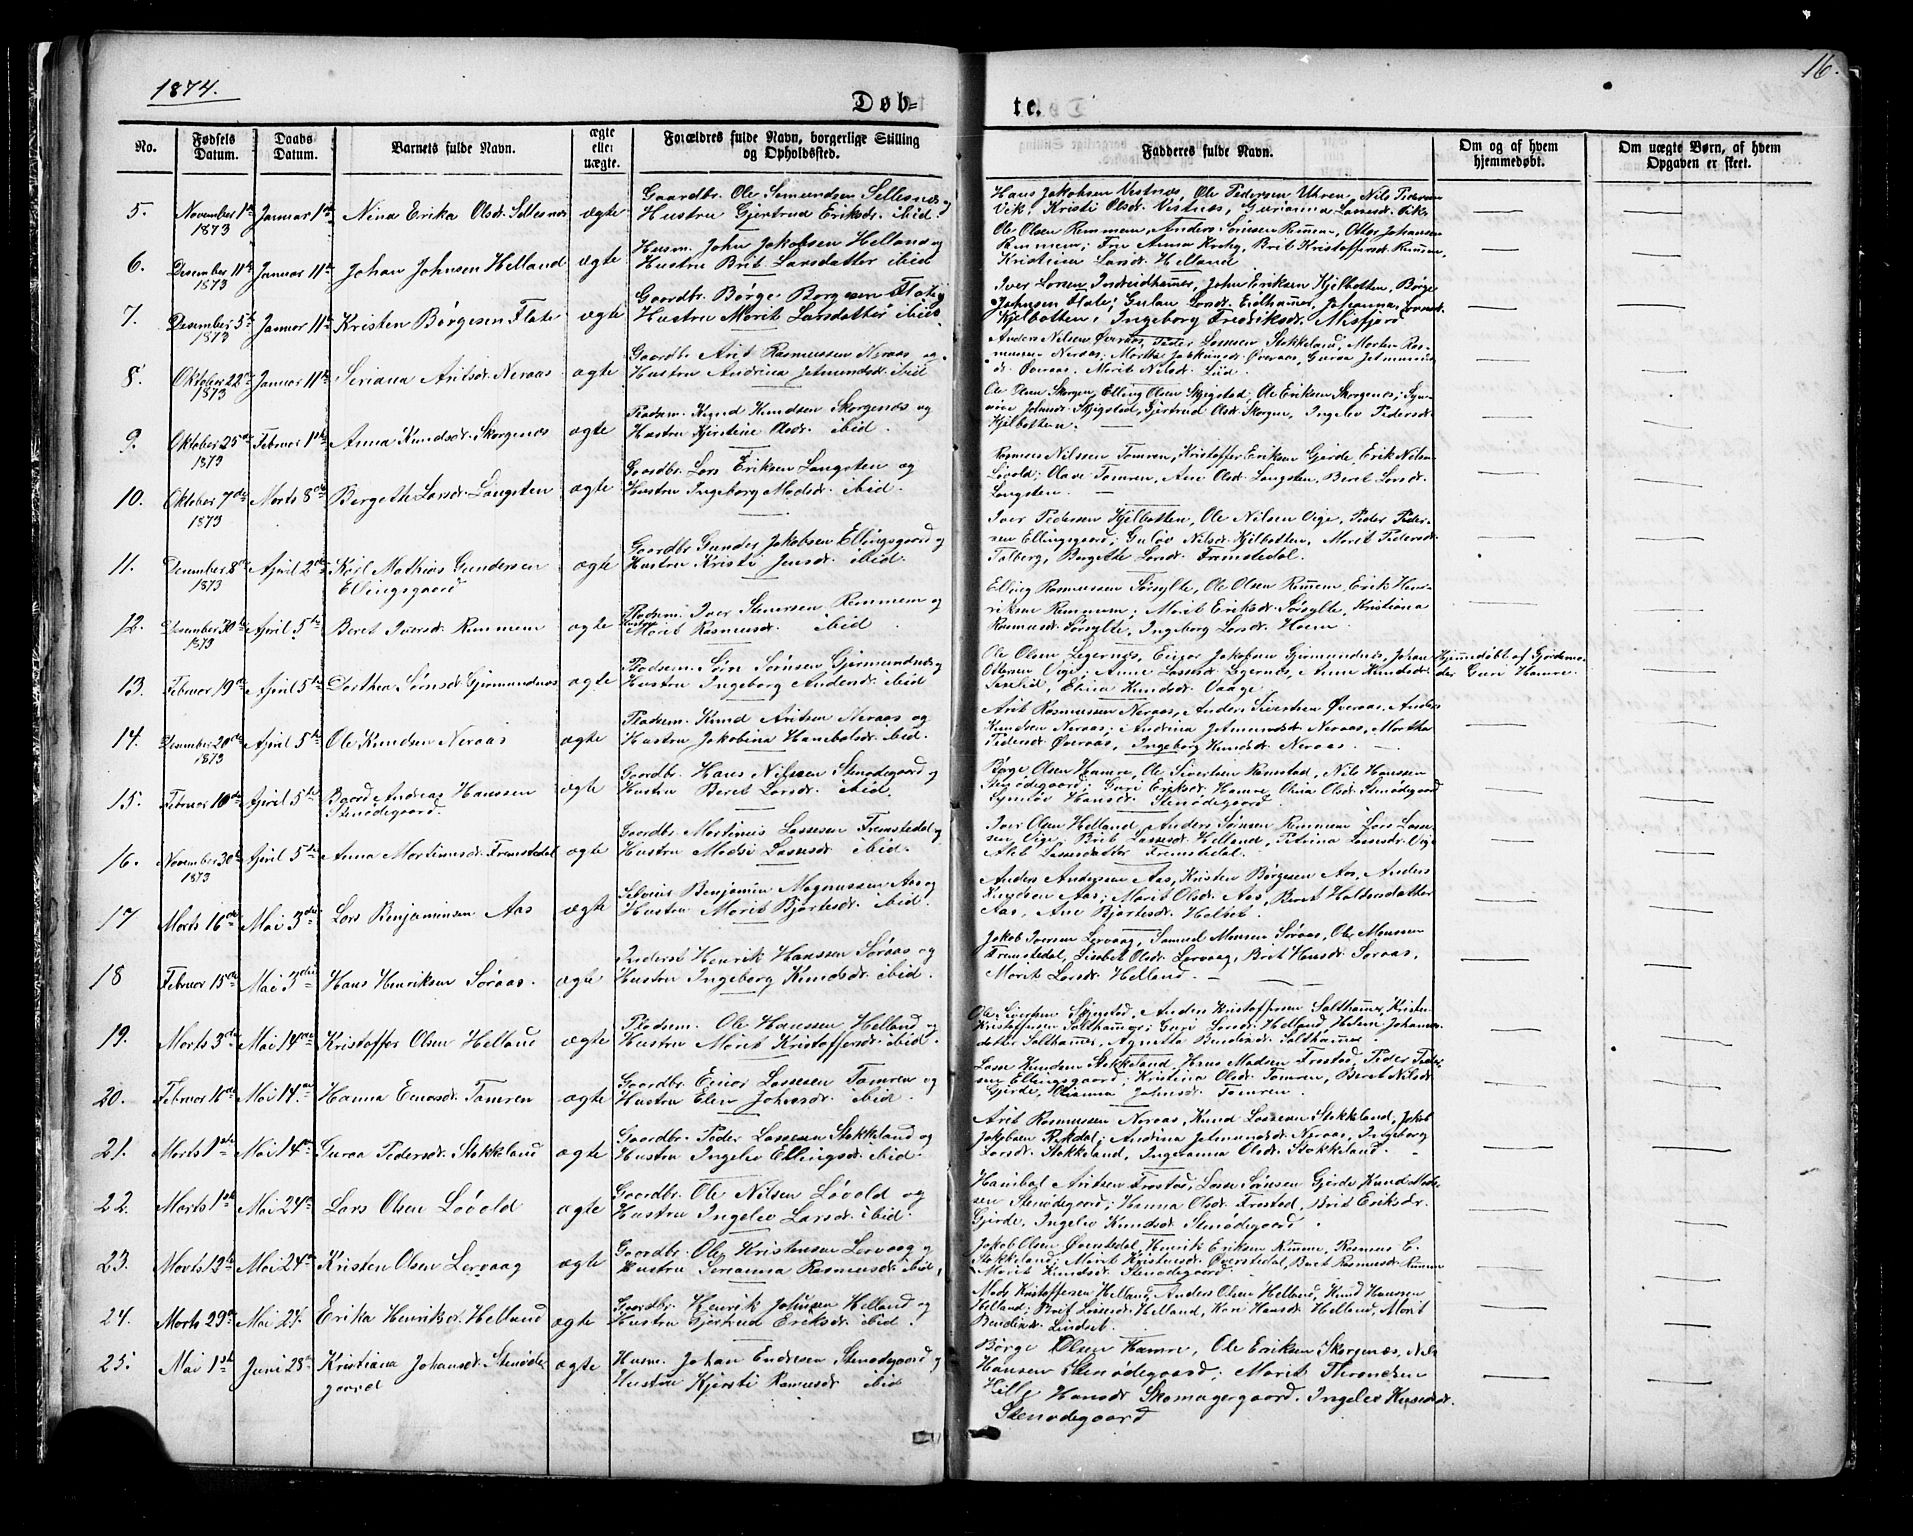 1874.
16.
Døb-
te.
No.
Fødsels Datum.
Daabs Datum.
Barnets fulde Navn.
ægte eller uægte.
Forældres fulde Navn, borgerlige Stilling og Opholdssted.
Fadderes fulde Navn.
Om og af hvem hjemmedøbt.
Om uægte Børn, af hvem Opgaven er skeet.
5. November 1ste 1873 Januar 1ste Nina Erika Olsdr. Sellesnæs ægte
Gaardbr. Ole Semundsen Sellesnæs og
Hustru Gjertrud Eriksdr. ibid.
Hans Jakobsen Vestnæs, Ole Pedersen Uhren, Nils Pedersen
Vik; Kristi Olsdr. Vestnæs, Gurianna Lassesdr. Vik.
6. Desember 11te 1873 Januar 11te Johan Johnsen Helland ægte
Husm. John Jakobsen Helland og
Hustru Brit Larsdatter ibid
Ole Olsen Remmem, Anders Sørensen Remmem, Ole Johansen
Remmem; Fru Anna Krohg, Brit Kristoffersdr. Remmem,
Kristina Larsdr. Helland
7. Desember 5te 1873 Januar 11te Kristen Børgesen Flate ægte
Gaardbr. Børge Børgesen Flate og
Hustru Marit Larsdatter ibid.
Iver Larsen Indreidhammer, John Eriksen Kjelbotten, Børge
Johnsen Flate; Gulau Larsdr. Eidhammer, Johanna Iversdr.
Kjelbotten; Ingeborg Fredriksdr. Misfjord
8. Oktober 22de 1873 Januar 11te Seriana Aritsdr. Neraas ægte
Gaardbr. Arit Rasmussen Neraas og
Hustru Andrina Jetmundsdr. ibid
Anders Nilsen Øveraas, Peder Lassesen Stokkeland, Morten Ras-
mussen Neraas; Martha Jakobsdr. Øveraas, Guraa Jetmunds-
dr. Øveraas, Marit Nilsdr. Liid.
9. Oktober 25de 1873 Februar 1ste Anna Knudsdr. Skorgenæs ægte
Pladsm. Knud Knudsen Skorgenæs og
Hustru Kjerstine Olsdr. ibid.
Ole Olsen Skorgen, Elling Olsen Skjegstad, Ole Eriksen Skorgenes; Syn-
nøve Johnsdr. Skjegstad, Gjertrud Olsdr. Skorgen, Ingelev Pedersdr.
Kjelbotten.
10. Oktober 7de 1873 Marts 8de Bergethe Larsdr. Langsten ægte
Gaardbr. Lars Eriksen Langsten og
Hustru Ingeborg Madsdr. ibid
Rasmus Nilssen Tomren, Kristoffer Eriksen Gjerde, Erik Nilsen
Løvold; Olave Tomren, Ane Olsdr. Langsten, Beret Larsdr.
Langsten.
11. Desember 8de 1873 April 2den Karl Mathias Gundersen Ellingsgaard ægte
Gaardbr. Gunder Jakobsen Ellingsgaard og
Hustru Kristi Jensdr. ibid.
Iver Pedersen Kjelbotten, Ole Nilsen Vige, Peder Peder-
sen Ellingsgaard; Guløv Nilsdr. Kjelbotten, Marit Pedersdr.
Talberg, Bergethe Larsdr. Fremstedal.
12. Desember 30te 1873 April 5te Beret Iversdr. Remmem ægte
Pladsem. Iver Stenersen Remmem og
Hustru Marit Rasmusdr. ibid
Elling Rasmussen Sørsylte, Ole Olsen Remmem, Erik Hen-
riksen Remmem; Marit Eriksdr. Sørsylte, Kristiana
Rasmusdr. Sørsylte, Ingeborg Larsdr. Hoem
13. Februar 19de April 5te Dorthea Sørnsdr. Gjermundnæs ægte
Pladsem. Sørn Sørnsen Gjermundnæs og
Hustru Ingeborg Andersdr. ibid
Ole Olsen Legernæs, Einar Jakobsen Gjermundnæs, Johan
Ottersen Vige; Anne Lassesdr. Legernæs, Anne Knudsdr.
Saxelid, Elina Knudsdr. Vaage.
Hjemmedøbt af Gjordemo-
der Guri Hamre.
14. Desember 20de 1873 April 5te Ole Knudsen Neraas ægte
Pladsem. Knud Aritsen Neraas og
Hustru Jakobina Hanibalsdr. ibid.
Arit Rasmussen Neraas, Anders Sivertsen Øveraas, Anders
Knudsen Neraas; Andrina Jetmundsdr. Neraas, Martha
Pedersdr. Øveraas, Ingeborg Knudsdr. Neraas.
15. Februar 10de April 5te Baard Andreas Hanssen Stenødegaard. ægte
Gaardbr. Hans Nilssen Stenødegaard og
Hustru Beret Larsdr. ibid.
Børge Olsen Hamre, Ole Sivertsen Ramstad, Nils Hanssen
Stenødegaard; Guri Eriksdr. Hamre, Olina Olsdr. Stenødegaard
Synnøv Hansdr. Stenødegaard.
16. November 30te 1873 April 5te Anna Martinusdr. Fremstedal ægte
Gaardbr. Martinus Lassesen Fremstedal og
Hustru Madsi Lassesdr. ibid.
Iver Olsen Helland, Anders Sørnsen Remmem, Lars Lasse-
sen Vige; Brit Lassesdr. Helland, Petrina Lassesdr. Vige
Alet Lassesdatter Fremstedal.
17 Marts 16de Mai 3die Lars Benjaminsen Aas ægte
Selveier Benjamin Magnussen Aas og
Hustru Marit Bjørtesdr. ibid.
Anders Andersen Aas, Kristen Børgesen Aas, Anders
Knudsen Aas; Marit Olsdr. Aas, Beret Haldensdatter
Aas, Ane Bjørtesdr. Holset.
18 Februar 15de Mai 3die Hans Henriksen Søraas. ægte
Inderst Henrik Hanssen Søraas og
Hustru Ingeborg Knudsdr. ibid.
Jakob Iversen Lervaag, Samuel Monsen Søraas, Ole Monssen
Fremstedal, Lisabet Olsdr. Lervaag, Brit Hansdr. Søraas,
Marit Larsdr. Helland.
19. Marts 3die Mai 14de Kristoffer Olsen Helland ægte
Pladsem. Ole Hanssen Helland og
Hustru Marit Kristoffersdr. ibid.
Ole Sivertsen Skjegstad, Anders Kristoffersen Salthammer, Kristen
Kristoffersen Salthammer; Guri Larsdr. Helland, Helene Johannes-
datter Salthammer, Agnetta Bendixdr. Salthammer.
20. Februar 10de Mai 14. Hanna Einarsdr. Tomren ægte
Gaardbr. Einar Lassesen Tomren og
Hustru Elen Johnsdr. ibid.
Lasse Knudsen Stokkeland, Hans Madsen Frostad, Peder Peder-
sen Ellingsgaard; Kristina Olsdr. Tomren, Beret Nilsdr.
Gjerde, Olianna Johnsdr. Tomren.
21. Marts 1ste Mai 14de Guraa Pedersdr. Stokkeland ægte
Gaardbr. Peder Lassesen Stokkeland og
Hustru Ingelev Ellingsdr. ibid.
Arit Rasmussen Neraas, Knud Lassesen Stokkeland, Jakob
Jakobsen Rekdal; Andrina Jetmundsdr. Neraas, Ingeborg
Larsdr. Stokkeland, Ingeranna Olsdr. Stokkeland.
22. Marts 1ste Mai 24de Lars Olsen Løvold ægte
Gaardbr. Ole Nilsen Løvold og
Hustru Ingelev Larsdr. ibid.
Hanibal Aritsen Frostad, Lasse Sørnsen Gjerde, Knud Mad-
sen Stenødegaard; Hanna Olsdr. Frostad, Brit Eriksdr.
Gjerde, Ingelev Knudsdr. Stenødegaard.
23. Marts 12te Mai 24de Kristen Olsen Lervaag ægte
Gaardbr. Ole Kristensen Lervaag og
Hustru Serianna Rasmusdr. ibid.
Jakob Olsen Øverstedal, Henrik Eriksen Remme, Rasmus E.
Stokkeland; Marit Kristensdr. Øverstedal, Brit Rasmusdr. Remmem
Marit Knudsdr. Stenødegaard.
24. Marts 29de Mai 24. Erika Henriksdr. Helland ægte
Gaardbr. Henrik Johnsen Helland og
Hustru Gjertrud Eriksdr. ibid.
Mads Kristoffersen Helland, Anders Olsen Helland, Knud Hanssen
Helland; Brit Larsdr. Helland, Kari Hansdr. Helland, Marit
Bendixdr. Lindset.
25. Mai 1ste Juni 28de Kristiana Johansdr. Stenøde-
gaard ægte
Husm. Johan Endresen Stenødegaard og
Hustru Kjersti Rasmusdr. ibid
Børge Olsen Hamre, Ole Eriksen Skorgenæs, Nils
Hansen Stenødegaard; Marit Thronsen
Hille, Hansdr. Skomagergaard. Ingelev Knudsdr.
Stenødegaard